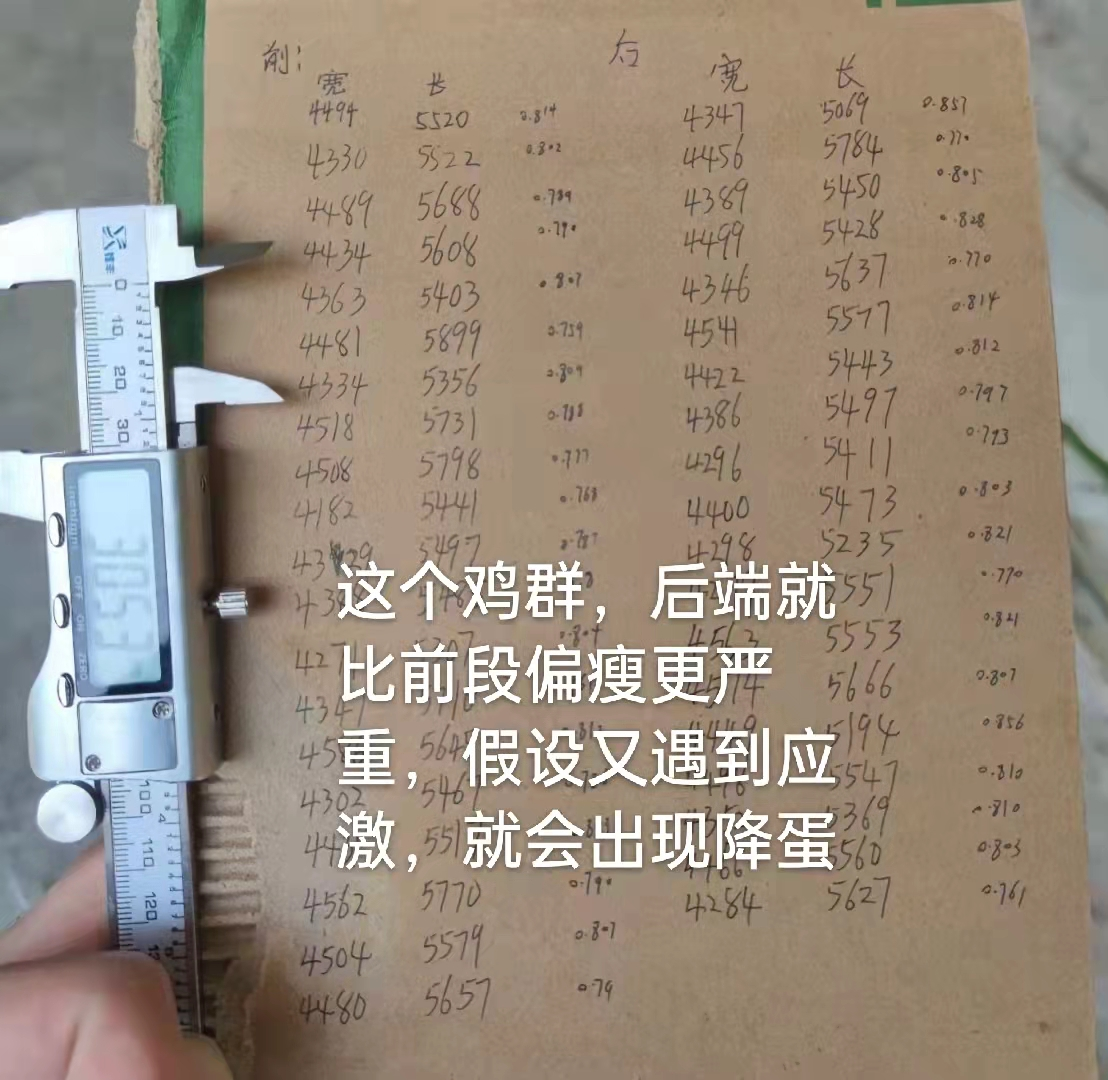 前: 后
宽 长 宽 长
4494 5520 0.814 4347 5069 0.857
4330 5522 0.802 4456 5784 0.770
4489 5688 0.789 4389 5450 0.805
4434 5608 0.790 4499 5428 0.828
4363 5403 0.807 4346 5637 0.770
4481 5899 0.759 4541 5577 0.814
4334 5356 0.809 4422 5443 0.812
4518 5731 0.788 4386 5497 0.797
4508 5798 0.777 4296 5411 0.793
4182 5441 0.768 4400 5473 0.803
5497 0.787 4298 5235 0.821
5551 0.770
5307 0.804 4563 5553 0.821
4347 5666 0.807
4449 5194 0.856
4302 5461 5547 0.810
5369 0.810
5560 0.803
4562 5770 0.790 4284 5627 0.761
4504 5579 0.807
4480 5657 0.79
这个鸡群，后端就
比前段偏瘦更严
重，假设又遇到应
激，就会出现降蛋
0
10
20
30
inch/mm
OFF
ON
ZERO
30.53
100
4
110
120